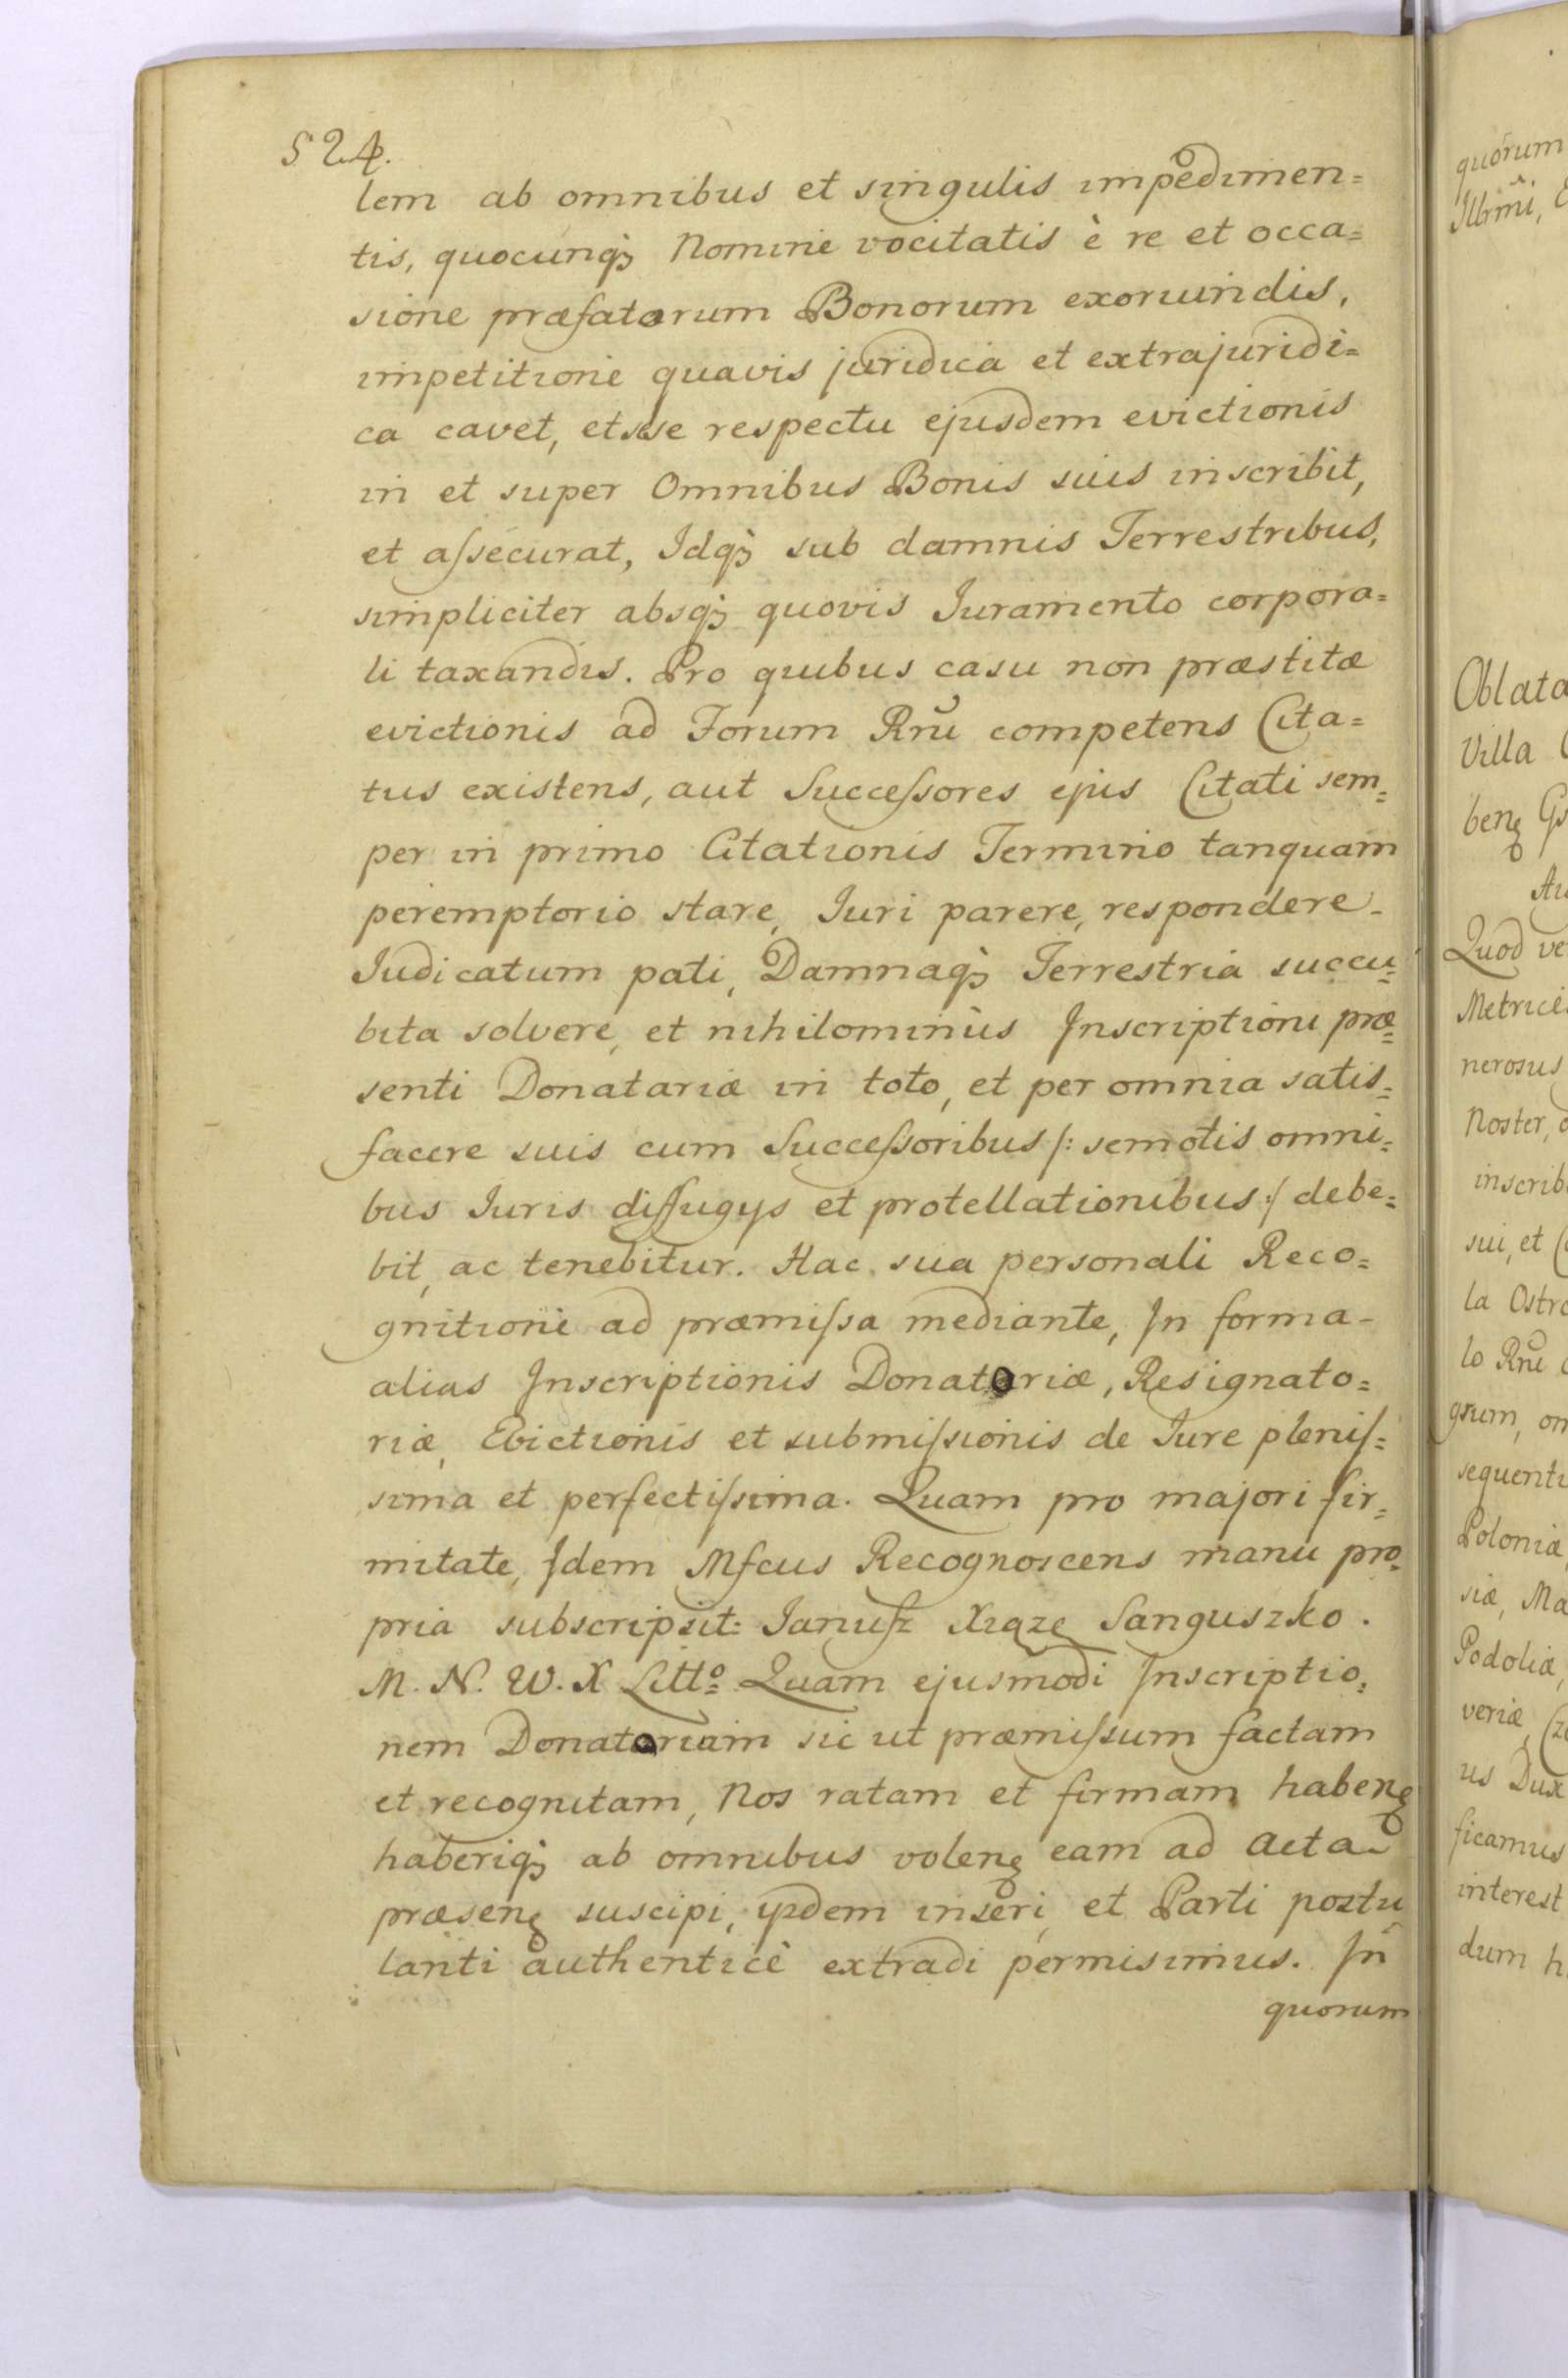 524.
lem ab omnibus et singulis impedimen=
tis, quocunq; Nomine vocitatis è re et occa=
sione præfatorum Bonorum exoriundis,
impetitione quavis juridica et extrajuridi=
ca cavet, et sese respectu ejusdem evictionis
in et super Omnibus Bonis suis inscribit,
et aſsecurat, Idq; sub damnis Terrestribus,
simpliciter absq; quovis Iuramento corpora=
li taxandis. Pro quibus casu non præstitæ
evictionis ad Forum Rñu competens Cita=
tus existens, aut Succeſsores ejus Citati sem=
per in primo Citationis Termino tanquam
peremptorio stare, Iuri parere, respondere
Iudicatum pati, Damnaq; Terrestria succu=
bita solvere, et nihilominùs Inscriptioni præ=
senti Donatariæ in toto, et per omnia satis=
facere suis cum Succeſsoribus /: semotis omni=
bus Iuris diffugÿs et protellationibus :/ debe=
bit, ac tenebitur. Hac sua personali Reco=
gnitione ad præmiſsa mediante, In forma
alias Inscriptionis Donatoriæ, Resignato=
riæ, Evictionis et submiſsionis de Iure pleniſ=
sima et perfectiſsima. Quam pro majori fir=
mitate, Idem Mfcus Recognoscens manu pro=
pria subscripsit: Ianuſz Xiąze Sanguszko.
M. N. W. X Litto= Quam ejusmodi Inscriptio=
nem Donatoriam sic ut præmiſsum factam
et recognitam, Nos ratam et firmam habenẽ
haberiq; ab omnibus volenẽ eam ad Acta
præsenẽ suscipi, ijsdem inseri, et Parti postu
lanti authenticè extradi permisimus. In
quorum
quorum
Illrmi,
Oblata
Villa
benẽ
Quod ve
Metrice
nerosus
Noster,
inscrib
sui, et
la Ostro
lo Rñu
grum, om
sequenti
Poloniæ
siæ, Ma
Podoliæ,
veriæ, Cze
us Dux
ficamus
interest
dum h